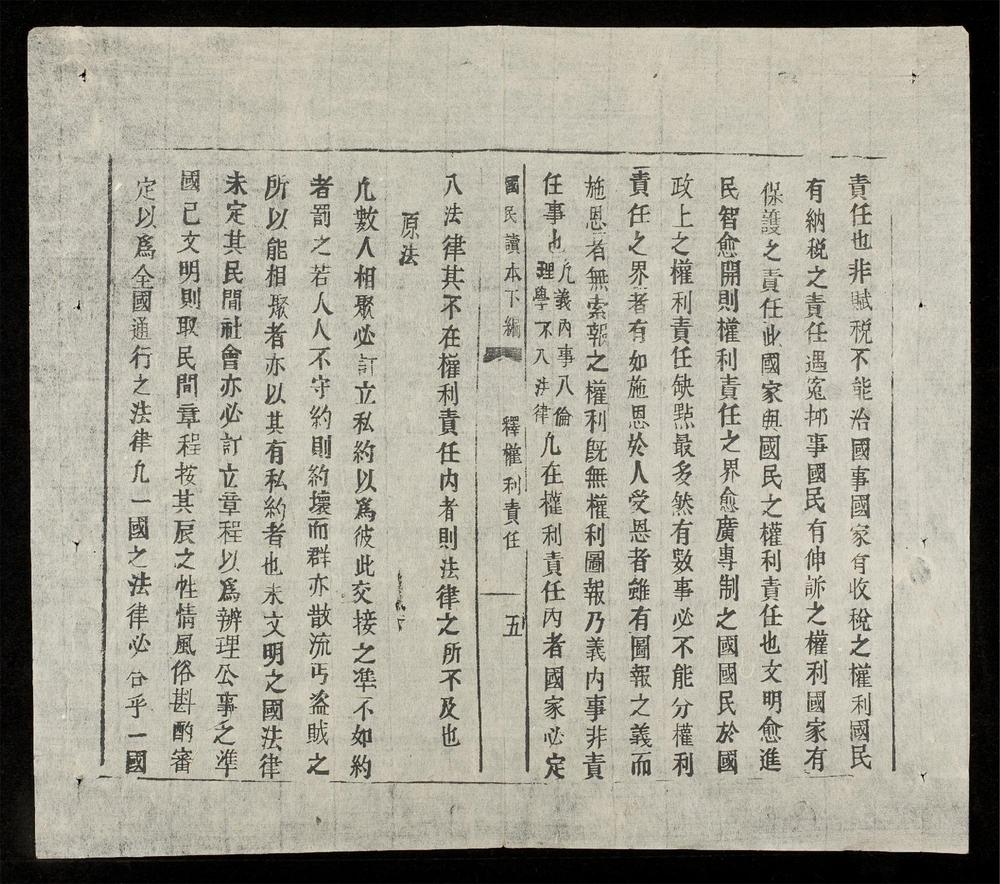 責任也非賦税不能治國事國家有收税之權利國民
有納税之責任遇冤抑事國民有伸訴之權利國家有
保護之責任此國家與國民之權利責任也文明愈進
民智愈開則權利責任之界愈廣專制之國國民於國
政上之權利責任缺㸃最多然有数事必不能分權利
責任之界者有如施恩於人受恩者雖有圖報之義而
施恩者無索報之權利旣無權利圖報乃義内事非責
任事也凢義内事入倫理學不入法律凢在權利責任内者國家必定
國民讀本下編 釋權利責任 五
入法律其不在權利責任内者則法律之所不及也
原法
凢數人相聚必訂立私約以爲彼此交接之準不如約
者罰之若人人不守約則約壞而群亦散流丐盗賊之
所以能相聚者亦以其有私約者也未文明之國法律
未定其民間社會亦必訂立章程以爲辨理公事之準
國已文明則取民間章程按其辰之性情風俗斟酌審
定以爲全國通行之法律凢一國之法律必合乎一國